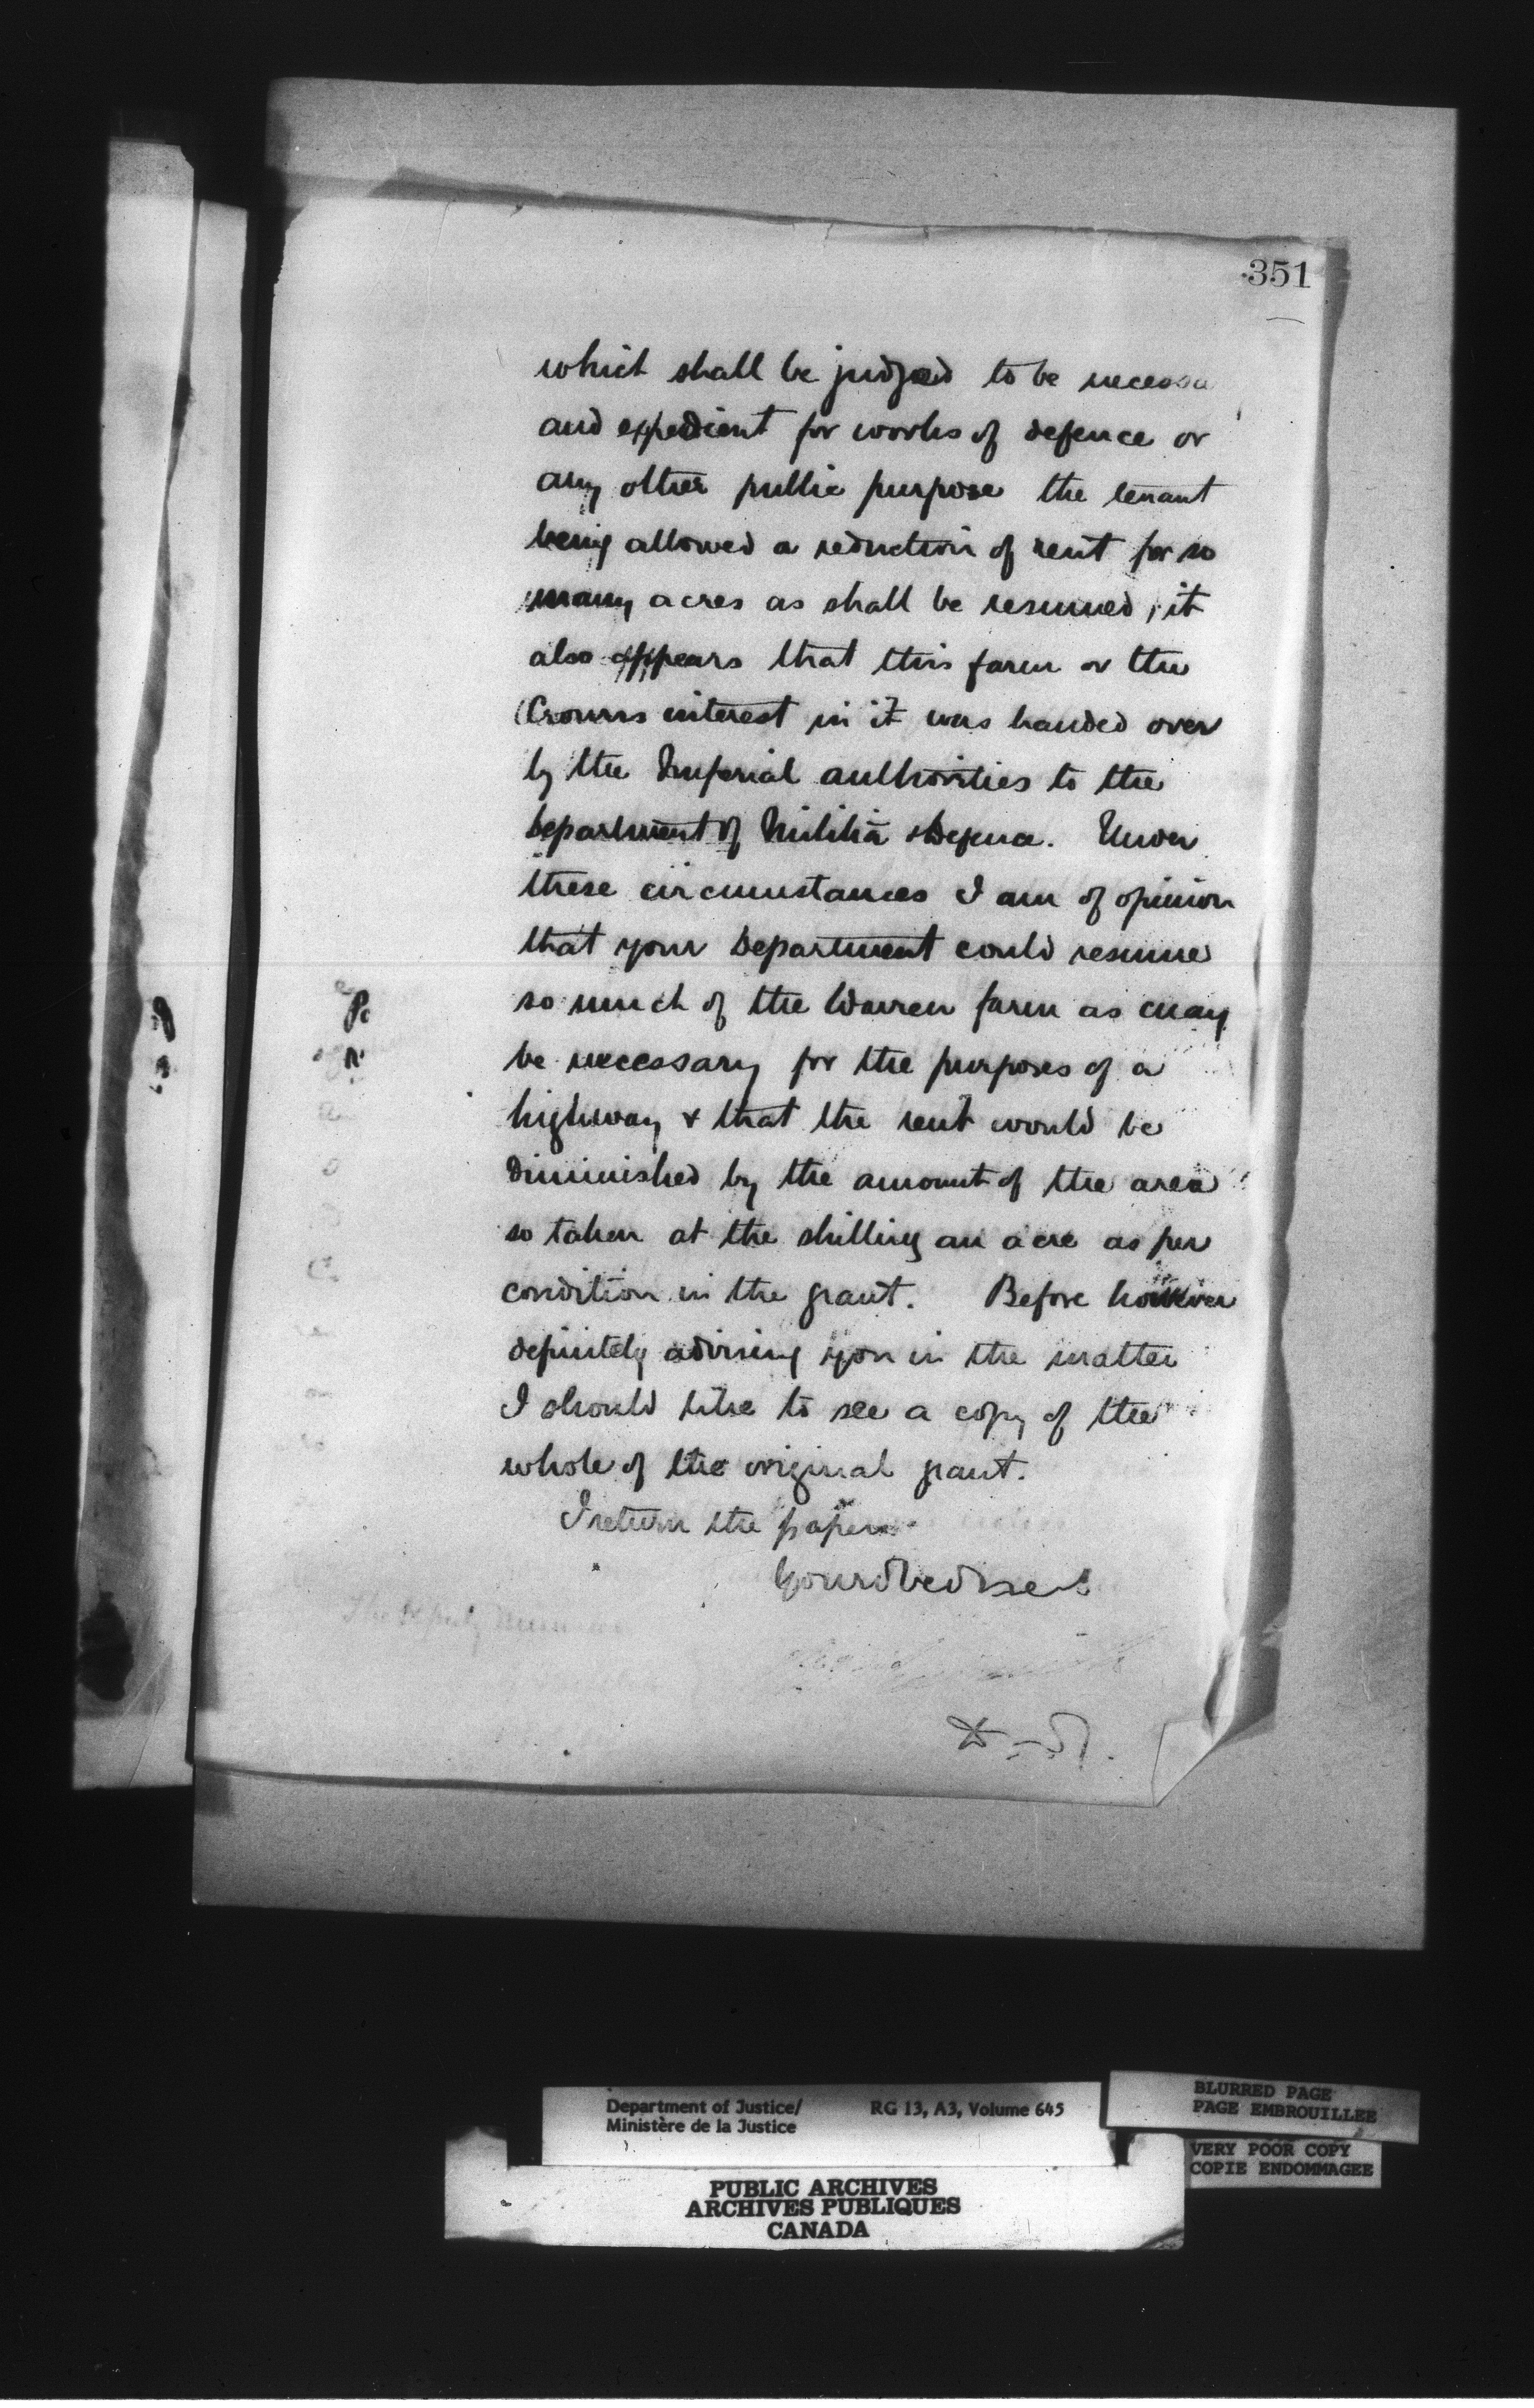 351
which shall be judged to be necessa
and expedient for works of defence or
any other public purpose the tenant
being allowed a reduction of rent for so
many acres as shall be resumed, it
also appears that this farm or the
Crowns interest in it was handed over
by the Imperial authorities to the
Department of Militia & Defence. Under
these circumstances I am of opinion
that your Department could resume
so much of the Warren farm as may
be necessary for the purposes of a
highway & that the rent would be
diminished by the amount of the area
so taken at the shilling an acre as per
condition in the grant. Before however
definitely advising you in the matter
I should like to see a copy of the
whole of the original grant.
I return the papers
Your obed ser
The Deputy
Department of Justice/
Ministère de la Justice
RG 13, A3, Volume 645
BLURRED PAGE
PAGE EMBROUILLEE
VERY POOR COPY
COPIE ENDOMMAGEE
PUBLIC ARCHIVES
ARCHIVES PUBLIQUES
CANADA